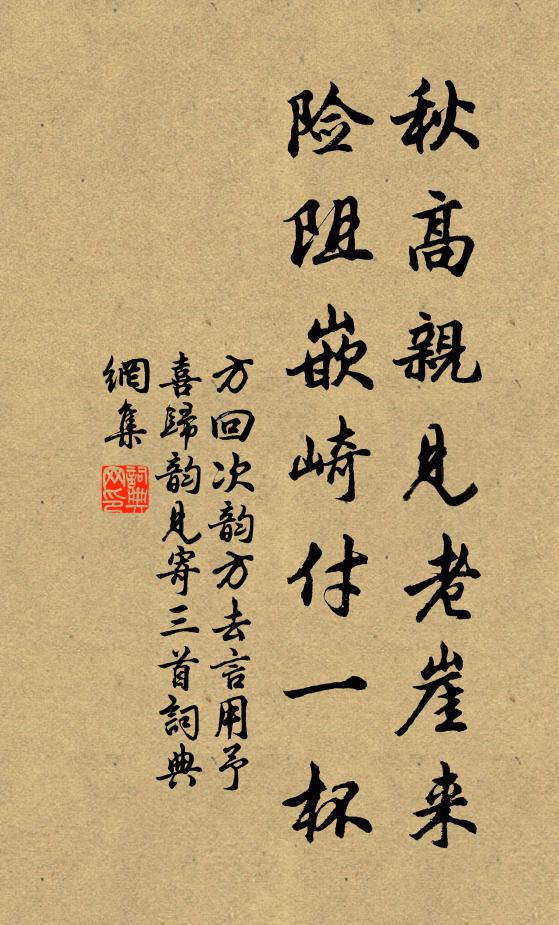 秋高親見老崖来
险阻嵌崎付一杯
方回次韵方去言用予
喜歸韵見寄三首詞典
網集
詞典網印